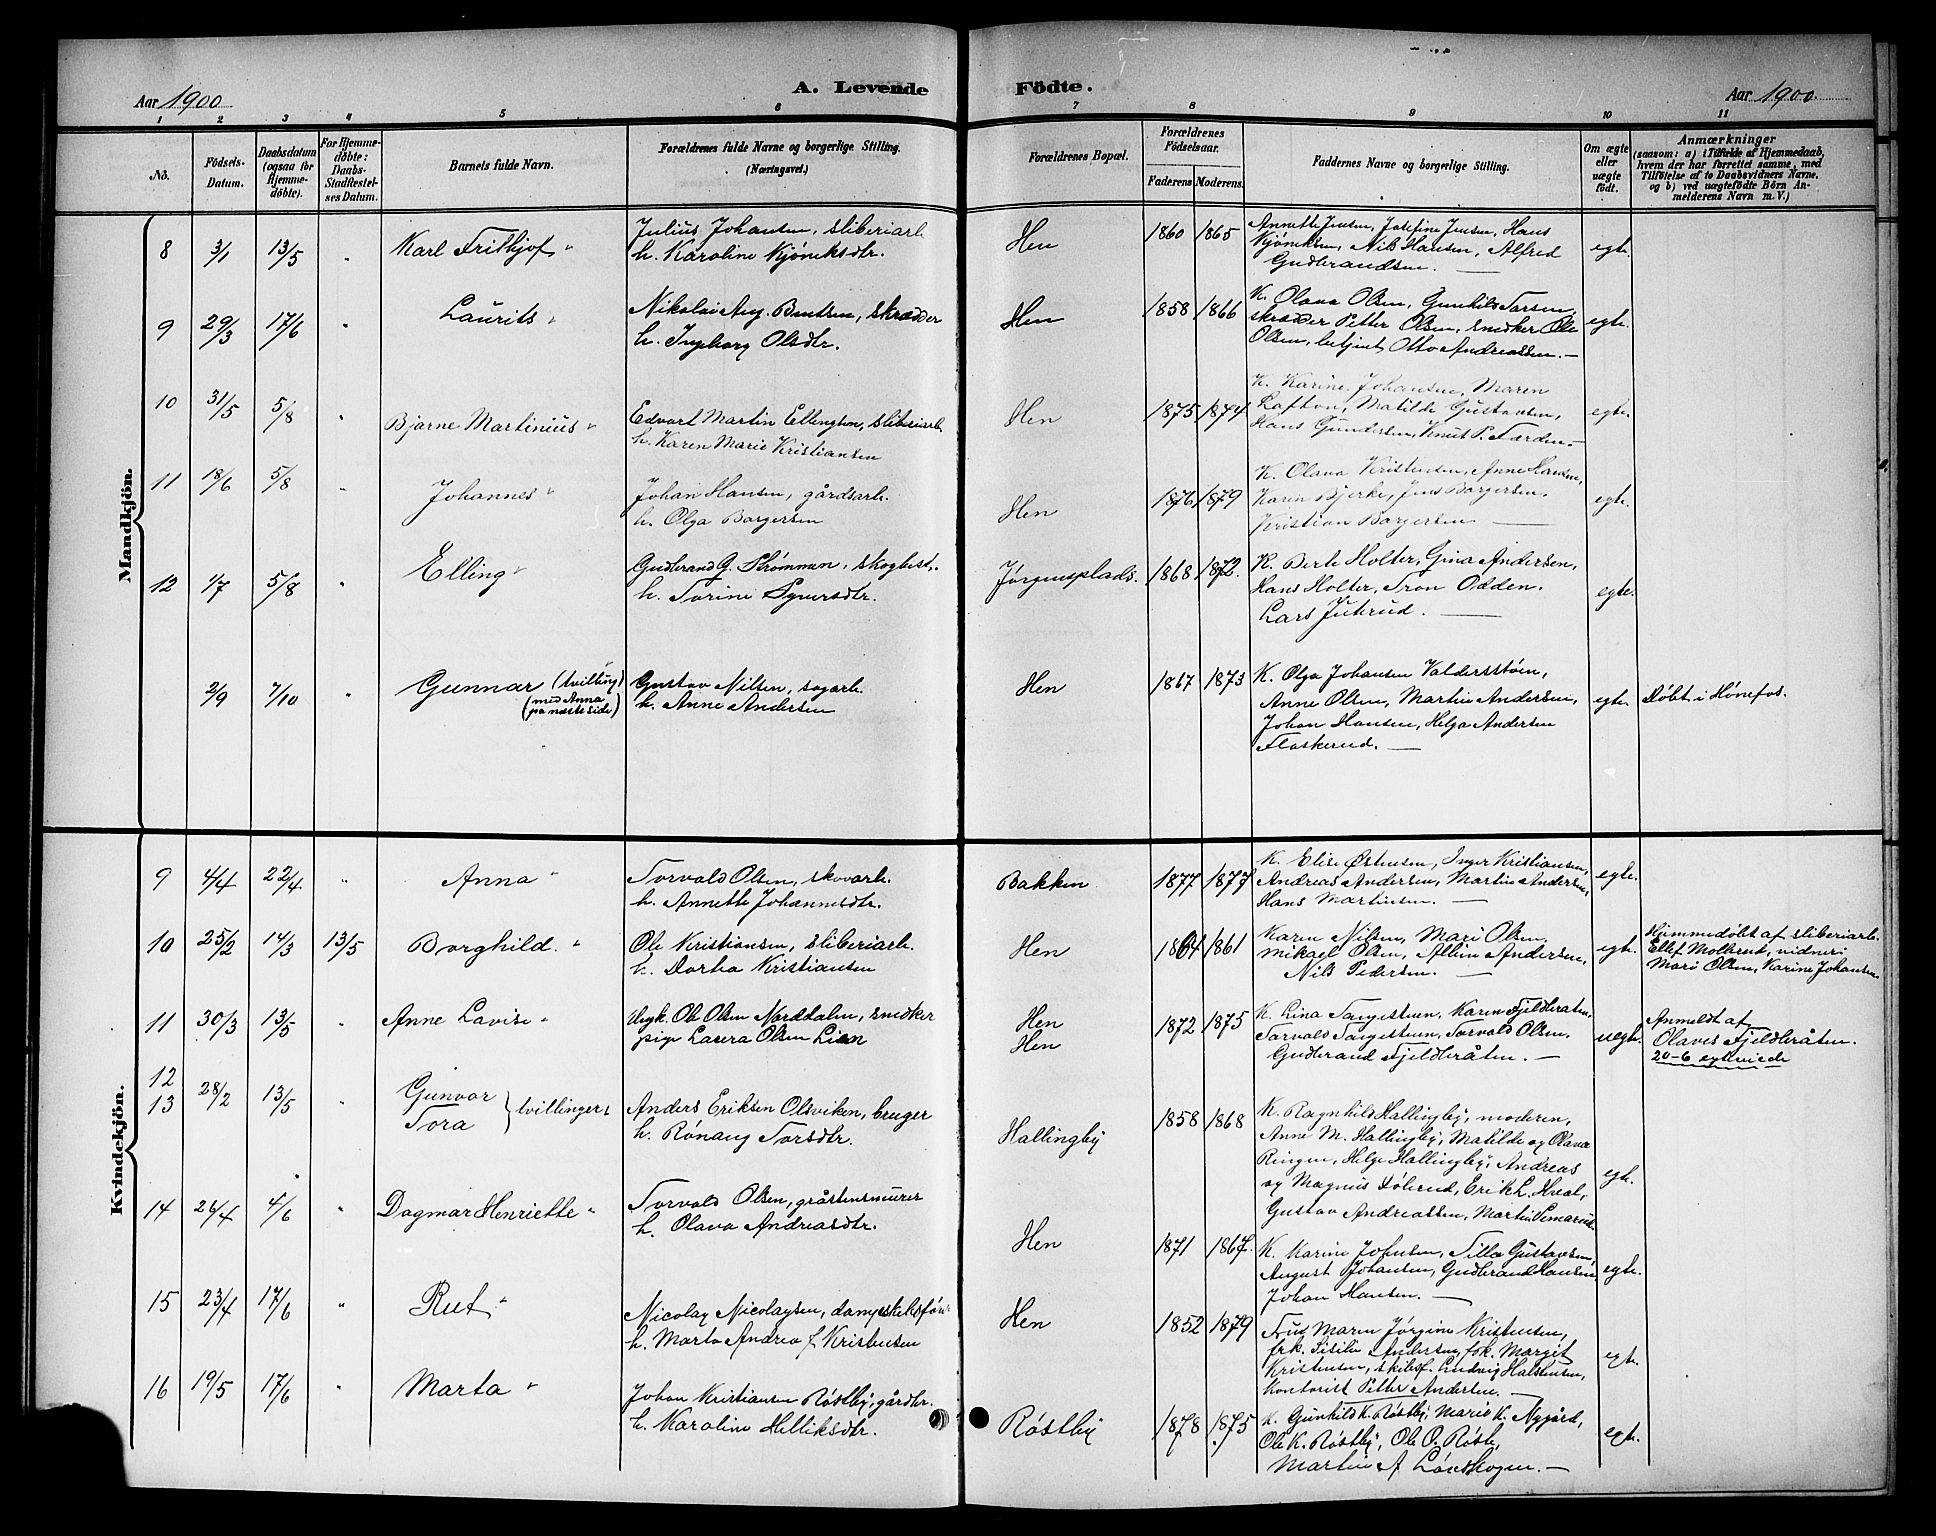 Aar 1900
A. Levende
Födte.
Aar 1900
1 2 3 4 5 6 7 8 9 10 11
No.
Födsels-
Datum.
Daabsdatum
(ogsaa for
Hjemme-
döbte).
For Hjemme-
döbte:
Daabs-
Stadfæstel-
ses Datum.
Barnets fulde Navn.
Forældrenes fulde Navne og borgerlige Stilling.
(Næringsvei.)
Forældrenes Bopæl.
Forældrenes
Födselsaar.
Faderens Moderens.
Faddernes Navne og borgerlige Stilling.
Om ægte
eller
uægte
födt.
Anmærkninger
(saasom: a) i Tilfælde af Hjemmedaab,
hvem der har forrettet samme, med
Tilföielse af to Daabsvidners Navne,
og b) ved uægtefödte Börn An-
melderens Navn m. V.)
Mandkjön.
8 3/1 13/5 " Karl Frithjof "
Julius Johansen, sliberiarb.
h. Karoline Kjøniksdtr.
Hen 1860 1865
Annette Jensen, Josefine Jensen, Hans
Kjøniksen, Nils Hansen, Alfred
Gudbrandsen. —
egte.
9 29/3 17/6 " Laurits "
Nikolai Aug. Bentsen, skrædder
h. Ingeborg Olsdtr.
Hen 1858 1866
K. Olava Olsen, Gunhild Larsen,
skrædder Petter Olsen, snedker Ole
Olsen, betjent Otto Andreassen. —
egte.
10 31/5 5/8 " Bjarne Martinius "
Edvart Martin Ellingsen, sliberiarb.
h. Karen Marie Kristiansen
Hen 1875 1874
K. Karine Johansen, Maren
Lafton, Matilde Gustavsen,
Hans Gundersen, Knut P. Færden. —
egte.
11 18/6 5/8 " Johannes "
Johan Hansen, gårdsarb.
h. Olga Borgersen
Hen 1876 1879
K. Olava Kristensen, Anne Hansen,
Karen Bjerke, Jens Borgersen,
Kristian Borgersen. —
egte.
12 1/7 5/8 " Elling "
Gudbrand G. Strømmen, skogbest.
h. Torine Syversdtr.
Jørgensplads. 1868 1872.
K. Berte Holter, Gina Andersen,
Hans Holter, Tron Odden.
Lars Juterud. —
egte.
2/9 7/10 " Gunnar (tvilling
(med Anna
på næste side)
Gustav Nilsen, sagarb.
h. Anne Andersen
Hen 1867 1873
K. Olga Johansen Valdersstøen,
Anne Olsen, Martin Andersen,
Johan Hansen, Helga Andersen
Flaskerud. —
egte
Døbt i Hønefos.
Kvindekjön.
9 4/4 22/4 " Anna "
Torvald Olsen, skovarb.
h. Annette Johannesdtr.
Bakken 1877 1877
K. Elise Østensen, Inger Kristiansen,
Andreas Andersen, Martin Andersen,
Hans Martinsen. —
egte.
10 25/2 14/3 13/5 Borghild. "
Ole Kristiansen, sliberiarb.
h. Dorthea Kristiansen
Hen 1864 1861
Karen Nilsen, Mari Olsen,
Mikael Olsen, Albin Andersen,
Nils Pedersen. —
egte.
Hjemmedøbt af sliberiarb.
Ellef Molkerud, vidner:
Mari Olsen, Karine Johansen.
11 30/3 13/5 " Anne Lavise "
Ungk. Ole Olsen Norddalen, snedker
pige Laura Olsen Lien
Hen
Hen
1872 1875
K. Lina Torgersen, Karen Fjeldbråten,
Torvald Torgersen, Torvald Olsen,
Gudbrand Fjeldbråten. —
uegte.
Anmeldt af
Olaves Fjeldbråten.
20-6 egteviede
12
13 28/2 13/5 " Gunvor
Tora } tvillinger "
Anders Eriksen Olsviken, bruger
h. Rønaug Torsdtr.
Hallingby 1858 1868
K. Ragnhild Hallingby, moderen,
Anne M. Hallingby, Matilde og Olava
Ringen, Helge Hallingby, Andreas
og Magnus Dølerud, Erik L. Hval,
Gustav Andreassen, Martin Semerud.
egte.
14 26/4 4/6 " Dagmar Henriette "
Torvald Olsen, gråstensmurer
h. Olava Andreasdtr.
Hen 1871 1867.
K. Karine Johnsen, Tilla Gustavsen,
August Johansen, Gudbrand Hansen,
Johan Hansen. —
egte.
15 23/4 17/6 " Rut "
Nicolay Nicolaysen, dampskibsfør.
h. Marta Andrea f. Kristensen
Hen 1852 1879
Frue Maren Jørgine Kristensen,
frk. Sisilie Andersen, frk. Margit
Kristensen, skibsf. Ludvig Halstensen,
Kontorist Petter Andersen. —
egte.
16 19/5 17/6 " Marta "
Johan Kristiansen Røstby, gårdbr.
h. Karoline Helliksdtr.
Røstby 1878 1875
K. Gunhild K. Røstby, Marie K. Nygård,
Ole K. Røstby, Ole P. Røste,
Martin A Lóndskogen. —
egte.